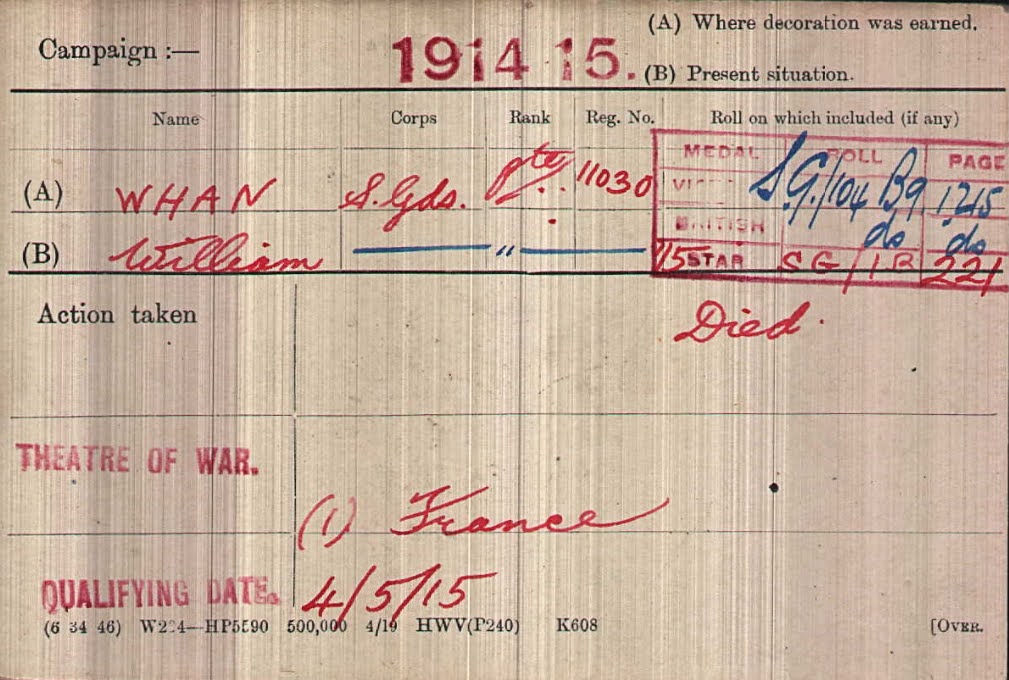 (A) Where decoration was earned.
Campaign :— 1914 15. (B) Present situation.
Name Corps Rank Reg. No. Roll on which included (if any)
MEDAL ROLL PAGE
(A) WHAN S. Gds. Pte. 11030 SG/104 B9 1215
BRITISH do do
(B) William — " — 15 STAR SG/1B 221
Action taken Died.
THEATRE OF WAR. (1) France
QUALIFYING DATE. 4/5/15
(6 34 46) W224—HP5590 500,000 4/19 HWV(P240) K608 [OVER.